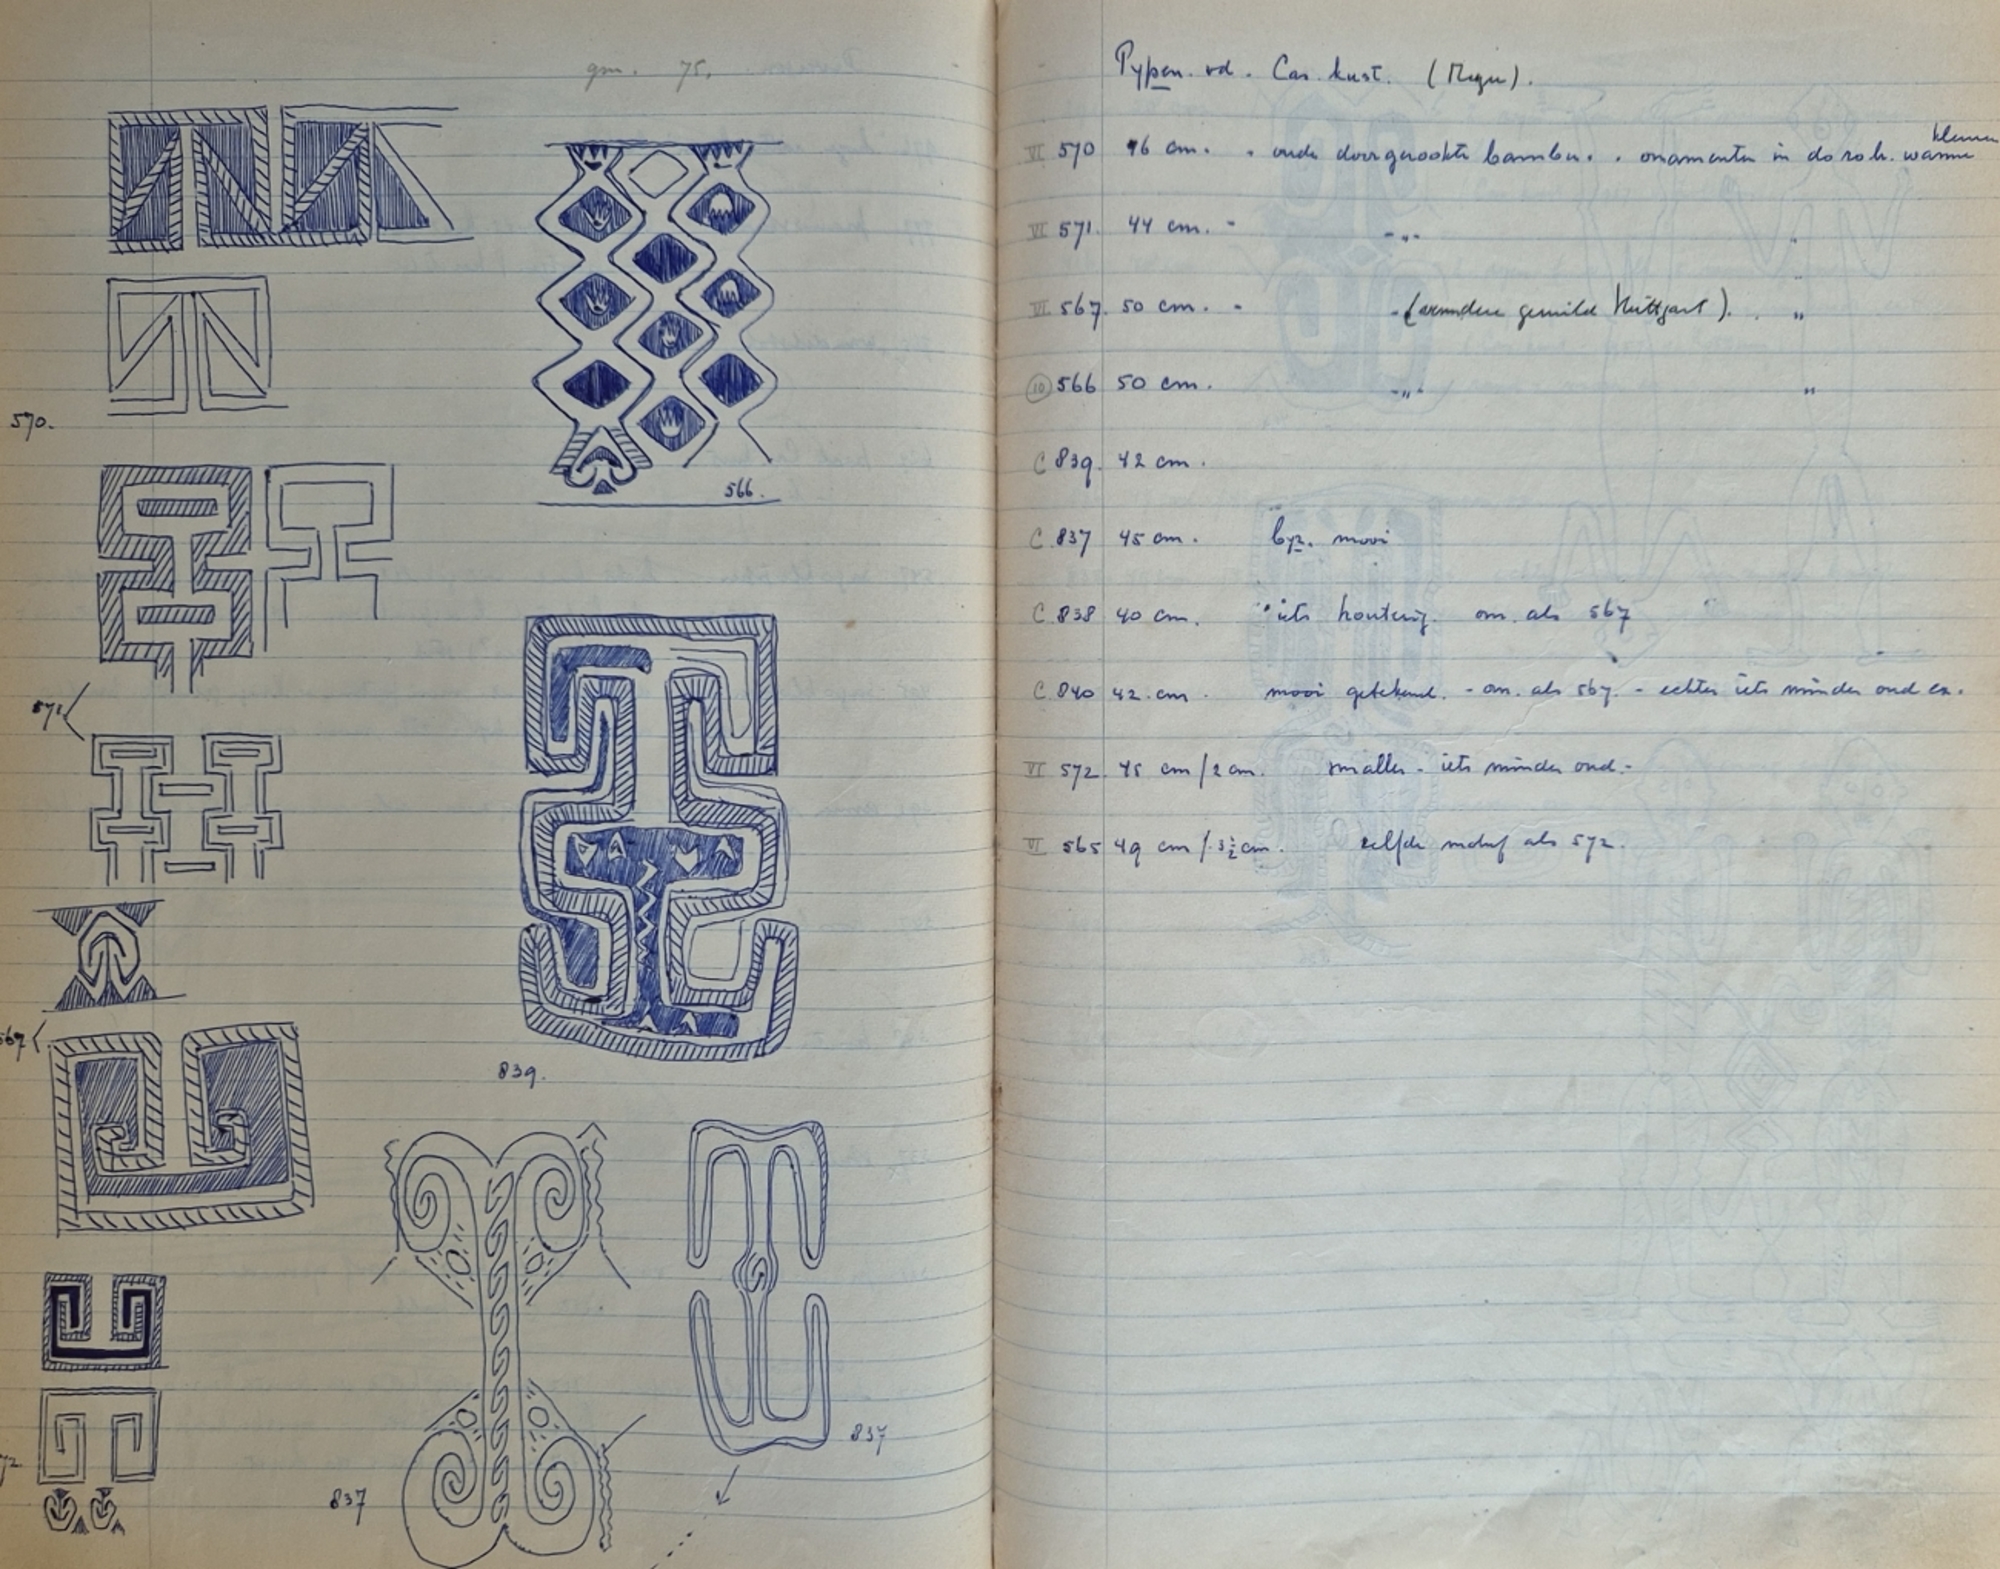 gm. 75.
570.
566.
571
839.
567
837
837
72
Pypen. vd. Cas. kust. (        ).
VI 570 46 cm. - oude doorgerookte bambu. - onamenten in do ro k. warme
kleuren
VI 571. 44 cm. - -„- „
VI 567. 50 cm. - - (              geruild Stuttgart). . „
10 566 50 cm. -„- „
C 839. 42 cm.
C. 837 45 cm. byz. mooi
C. 838 40 cm. iets houterig. om. als 567
C. 840 42. cm. mooi getekend. - om. als 567. - echter iets minder oud ex.
VI 572. 45 cm / 2 cm. smaller - iets minder oud.-
VI 565 49 cm / 3½ cm. zelfde motief als 572.